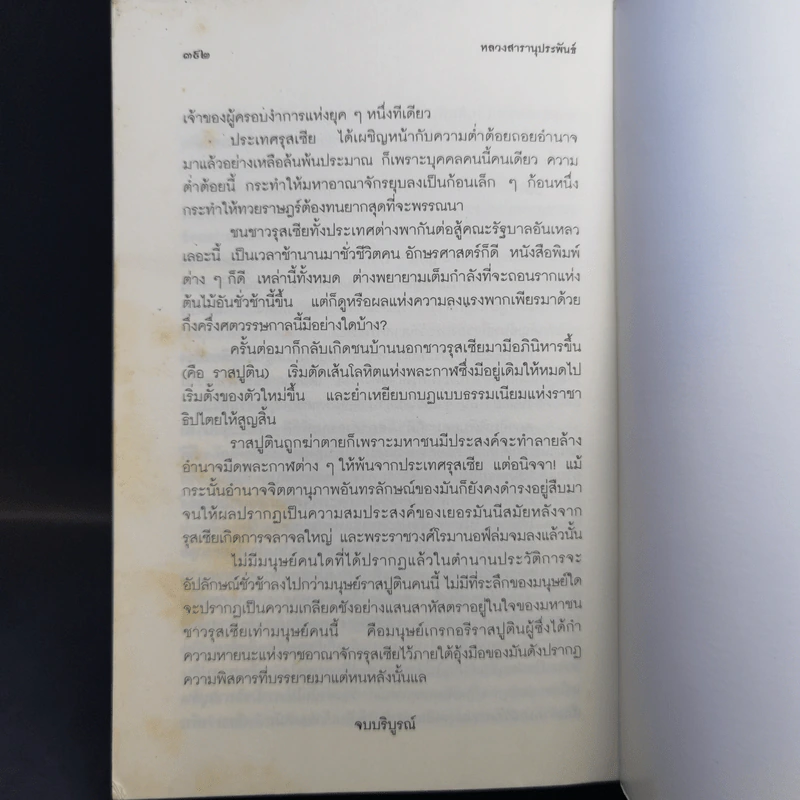 ๓๕๒
หลวงสารานุประพันธ์
เจ้าของผู้ครอบงำการแห่งยุค ๆ หนึ่งทีเดียว
ประเทศรุสเซีย ได้เผชิญหน้ากับความต่ำต้อยถอยอำนาจ
มาแล้วอย่างเหลือล้นพ้นประมาณ ก็เพราะบุคคลคนนี้คนเดียว ความ
ต่ำต้อยนี้ กระทำให้มหาอาณาจักรยุบลงเป็นก้อนเล็ก ๆ ก้อนหนึ่ง
กระทำให้ทวยราษฎร์ต้องทนยากสุดที่จะพรรณนา
ชนชาวรุสเซียทั้งประเทศต่างพากันต่อสู้คณะรัฐบาลอันเหลว
เลอะนี้ เป็นเวลาช้านานมาชั่วชีวิตคน อักษรศาสตร์ก็ดี หนังสือพิมพ์
ต่าง ๆ ก็ดี เหล่านี้ทั้งหมด ต่างพยายามเต็มกำลังที่จะถอนรากแห่ง
ต้นไม้อันชั่วช้านี้ขึ้น แต่ก็ดูหรือผลแห่งความลงแรงพากเพียรมาด้วย
กึ่งครึ่งศตวรรษกาลนี้มีอย่างใดบ้าง?
ครั้นต่อมาก็กลับเกิดชนบ้านนอกชาวรุสเซียมามีอภินิหารขึ้น
(คือ ราสปูติน) เริ่มตัดเส้นโลหิตแห่งพะกาฬซึ่งมีอยู่เดิมให้หมดไป
เริ่มตั้งของตัวใหม่ขึ้น และย่ำเหยียบกบฏแบบธรรมเนียมแห่งราชา
ธิปไตยให้สูญสิ้น
ราสปูตินถูกฆ่าตายก็เพราะมหาชนมีประสงค์จะทำลายล้าง
อำนาจมืดพละกาฬต่าง ๆ ให้พ้นจากประเทศรุสเซีย แต่อนิจจา! แม้
กระนั้นอำนาจจิตตานุภาพอันทรลักษณ์ของมันก็ยังคงดำรงอยู่สืบมา
จนให้ผลปรากฏเป็นความสมประสงค์ของเยอรมันนีสมัยหลังจาก
รุสเซียเกิดการจลาจลใหญ่ และพระราชวงศ์โรมานอฟล่มจมลงแล้วนั้น
ไม่มีมนุษย์คนใดที่ได้ปรากฏแล้วในตำนานประวัติการจะ
อัปลักษณ์ชั่วช้าลงไปกว่ามนุษย์ราสปูตินคนนี้ ไม่มีที่ระลึกของมนุษย์ใด
จะปรากฏเป็นความเกลียดชังอย่างแสนสาหัสตราอยู่ในใจของมหาชน
ชาวรุสเซียเท่ามนุษย์คนนี้ คือมนุษย์เกรกอรีราสปูตินผู้ซึ่งได้กำ
ความหายนะแห่งราชอาณาจักรรุสเซียไว้ภายใต้อุ้งมือของมันดังปรากฏ
ความพิสดารที่บรรยายมาแต่หนหลังนั้นแล
จบบริบูรณ์